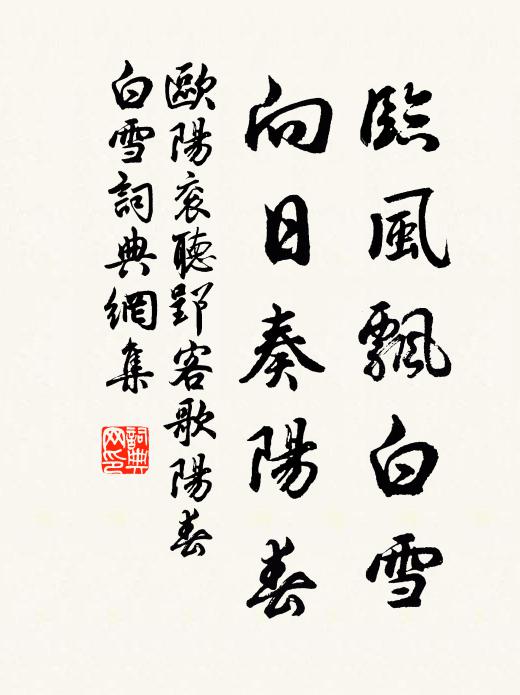 臨風飄白雪
向日奏陽春
歐陽衮聽郢客歌陽春
白雪詞典網集
詞典
网印